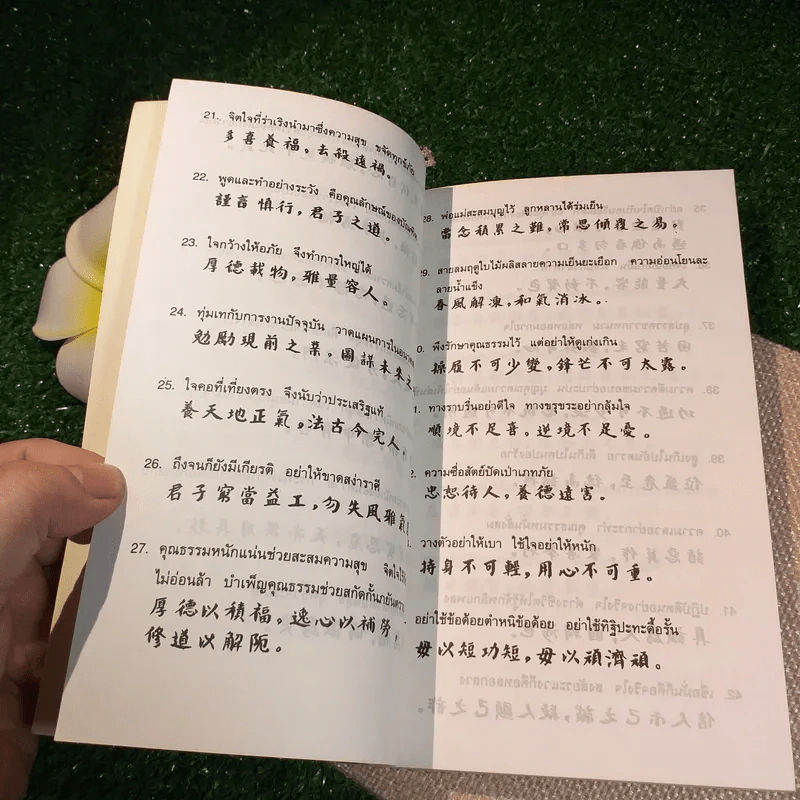 21. จิตใจที่ร่าเริงนำมาซึ่งความสุข ขจัดทุกข์ภัย
多喜養福，去殺遠禍。
22. พูดและทำอย่างระวัง คือคุณลักษณ์ของบัณฑิต
謹言慎行，君子之道。
23. ใจกว้างให้อภัย จึงทำการใหญ่ได้
厚德載物，雅量容人。
24. ทุ่มเทกับการงานปัจจุบัน วาดแผนการในอนาคต
勉勵現前之業，圖謀未來之
25. ใจคอที่เที่ยงตรง จึงนับว่าประเสริฐแท้
養天地正氣，法古今完人。
26. ถึงจนก็ยังมีเกียรติ อย่าให้ขาดสง่าราศี
君子窮當益工，勿失風雅氣
27. คุณธรรมหนักแน่นช่วยสะสมความสุข จิตใจ
ไม่อ่อนล้า บำเพ็ญคุณธรรมช่วยสกัดกั้นภยันตราย
厚德以積福，逸心以補勞，
修道以解阨。
28. พ่อแม่สะสมบุญไว้ ลูกหลานได้ร่มเย็น
當念積累之難，常思傾覆之易。
29. สายลมฤดูใบไม้ผลิสลายความเย็นยะเยือก ความอ่อนโยนละ
ลายน้ำแข็ง
春風解凍，和氣消冰。
0. พึงรักษาคุณธรรมไว้ แต่อย่าให้ดูเก่งเกิน
操履不可少變，鋒芒不可太露。
1. ทางราบรื่นอย่าดีใจ ทางขรุขระอย่ากลุ้มใจ
順境不足喜。逆境不足憂。
2. ความซื่อสัตย์ปัดเป่าเภทภัย
忠恕待人，養德遠害。
วางตัวอย่าให้เบา ใช้ใจอย่าให้หนัก
持身不可輕，用心不可重。
อย่าใช้ข้อด้อยตำหนิข้อด้อย อย่าใช้ทิฐิปะทะดื้อรั้น
毋以短功短，毋以頑濟頑。